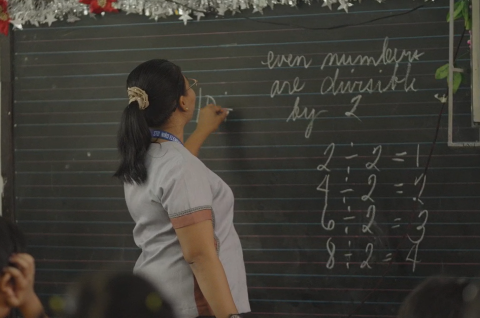 even numbers
are divisible
by 2
2 ÷ 2 = 1
4 ÷ 2 = 2
6 ÷ 2 = 3
8 ÷ 2 = 4